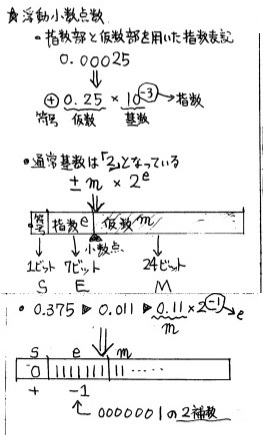 ☆浮動小数点数
・指数部と仮数部を用いた指数表記
0.00025
⇓
⊕ 0.25 × 10⁻³ → 指数
符号 仮数 基数
・通常基数は「2」となっている
± m × 2ᵉ
符号 指数 e 仮数 m
小数点
1ビット 7ビット 24ビット
S E M
・0.375 ▷ 0.011 ▷ 0.11 × 2⁻¹ → e
m
S e m
0 1111111 11 ·····
+ -1
↑ 0000001 の2補数